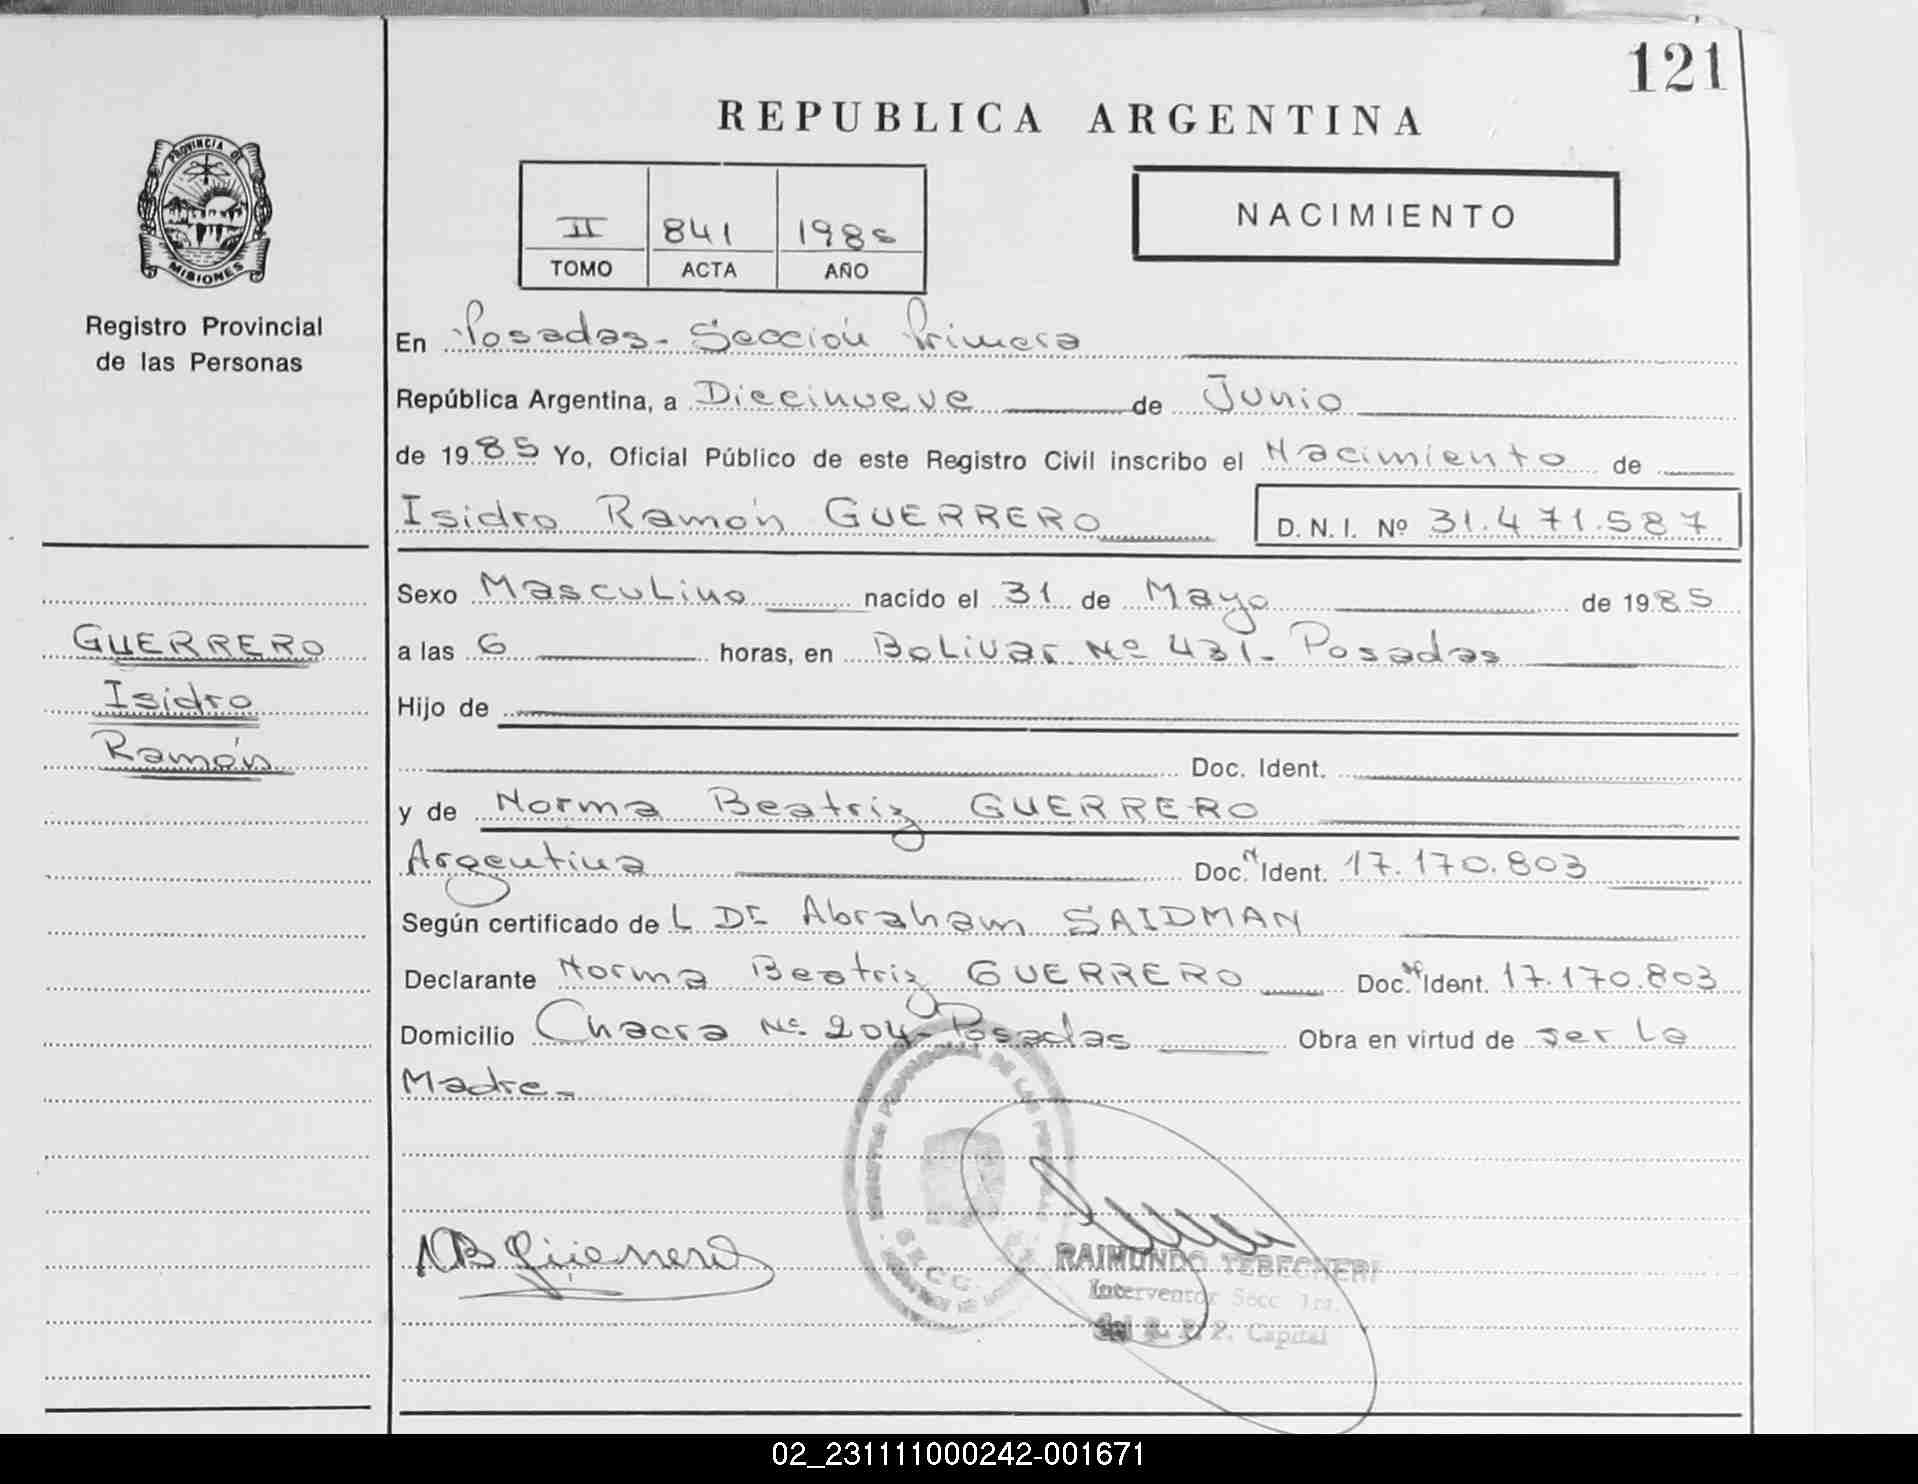 121
REPUBLICA ARGENTINA
PROVINCIA DE
MISIONES
Registro Provincial
de las Personas
II 841 1985
TOMO ACTA AÑO
NACIMIENTO
En Posadas - Sección Primera
República Argentina, a Diecinueve de Junio
de 1985 Yo, Oficial Público de este Registro Civil inscribo el Nacimiento de
Isidro Ramón GUERRERO D. N. I. Nº 31.471.587
Sexo Masculino nacido el 31 de Mayo de 1985
GUERRERO
Isidro
Ramón
a las 6 horas, en Bolivar Nº 431 - Posadas
Hijo de
Doc. Ident.
y de Norma Beatriz GUERRERO
Argentina Doc. N Ident. 17.170.803
Según certificado de L Dr Abraham SAIDMAN
Declarante Norma Beatriz GUERRERO Doc. Nº Ident. 17.170.803
Domicilio Chacra Nº 204 - Posadas Obra en virtud de ser la
Madre -
REGISTRO PROVINCIAL DE LAS PERSONAS
NB Guerrero
RAIMUNDO TEBECHERI
Interventor Secc. 1ra.
del R. P. P. Capital
02_231111000242-001671